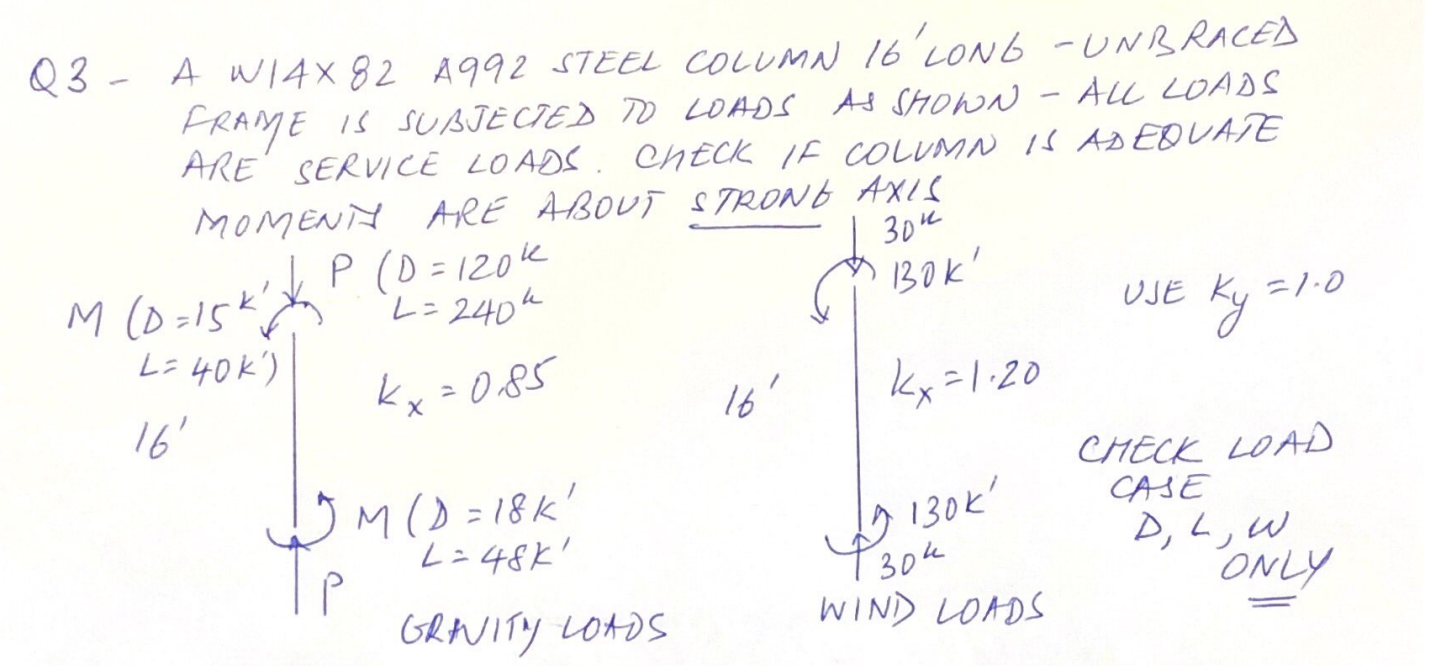 Q3 - A W14X82 A992 STEEL COLUMN 16' LONG - UNBRACED
FRAME IS SUBJECTED TO LOADS AS SHOWN - ALL LOADS
ARE SERVICE LOADS. CHECK IF COLUMN IS ADEQUATE
MOMENTS ARE ABOUT STRONG AXIS
P (D = 120k
L = 240k
M (D = 15k'
L = 40k')
kx = 0.85
16'
M (D = 18k'
L = 48k'
P
GRAVITY LOADS
30k
130k'
16'
kx = 1.20
130k'
30k
WIND LOADS
USE Ky = 1.0
CHECK LOAD
CASE
D, L, W
ONLY